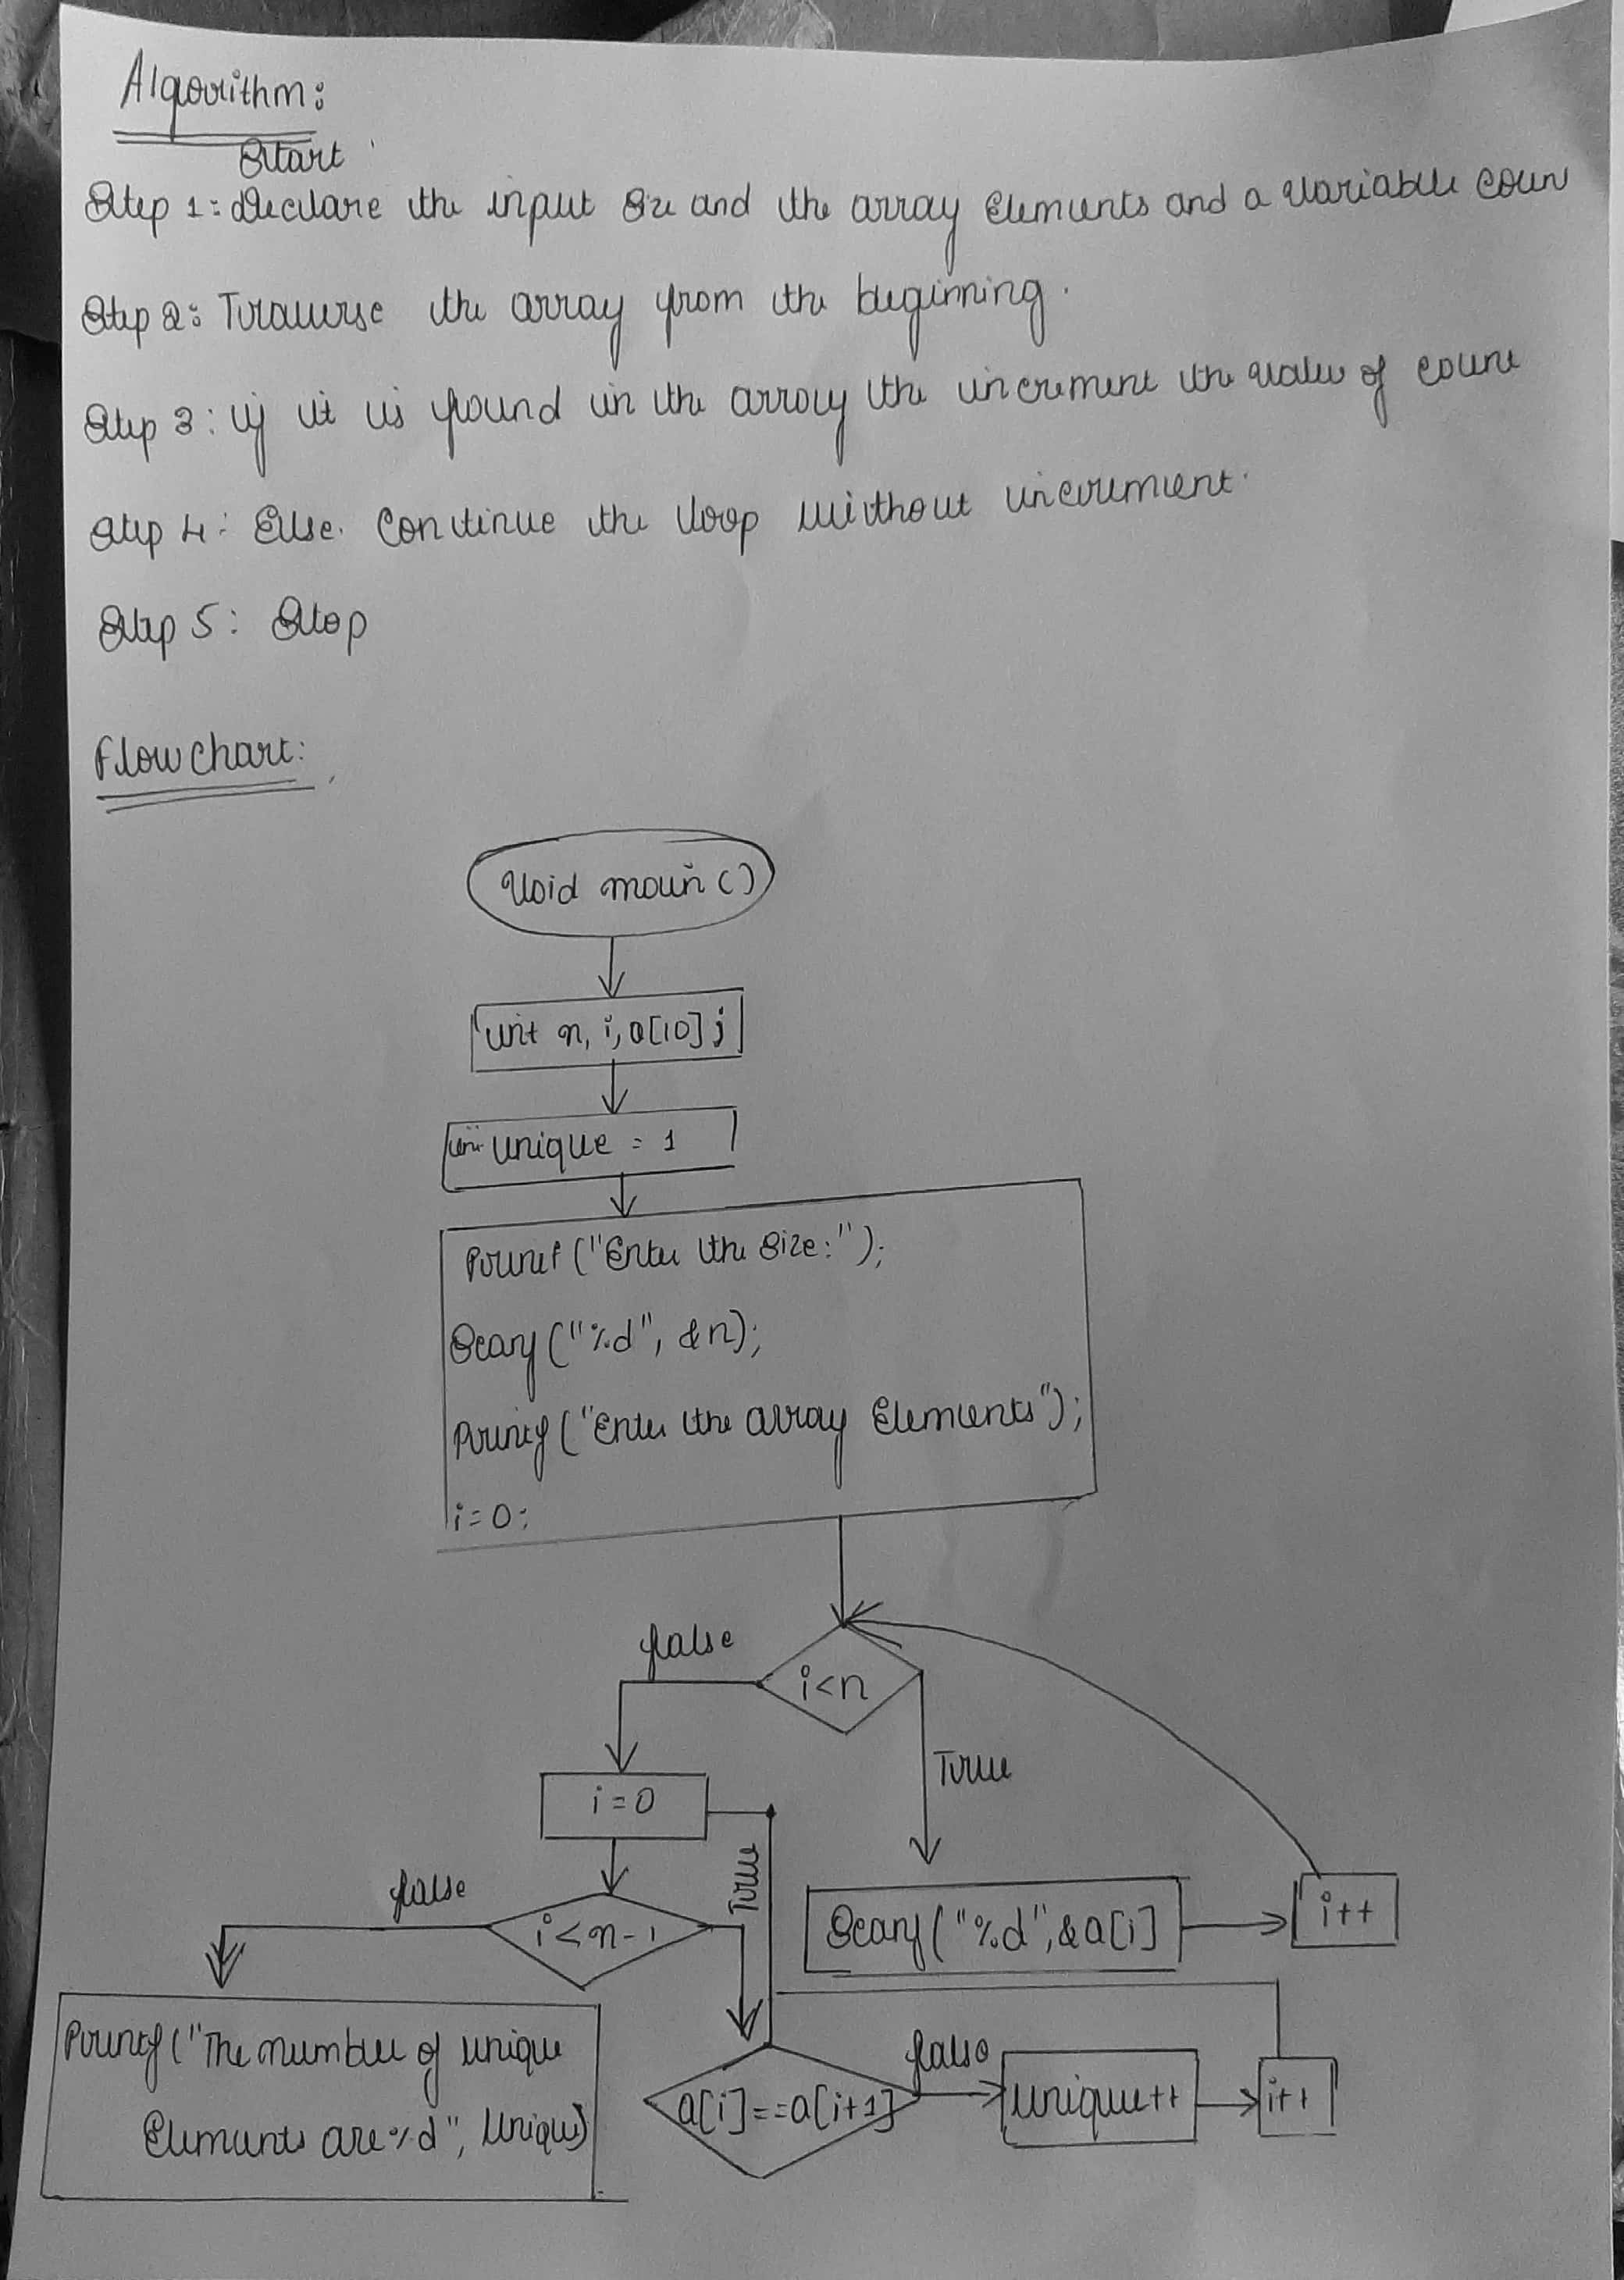 Algorithm:
Start
Step 1: Declare the input size and the array Elements and a variable coun
Step 2: Traverse the array from the beginning.
Step 3: if it is found in the array the increment the value of count
Step 4: Else. Continue the loop without increment.
Step 5: Stop
Flowchart:
Void main ()
int n, i, a[10];
int unique = 1
Printf ("Enter the size:");
Scanf ("%d", &n);
Printf ("Enter the array Elements");
i=0;
false
i<n
True
i=0
false
True
i<n-1
Scanf ("%d", &a[i]
i++
Printf ("The number of unique
Elements are %d", Unique)
a[i]==a[i+1]
false
unique++
i++